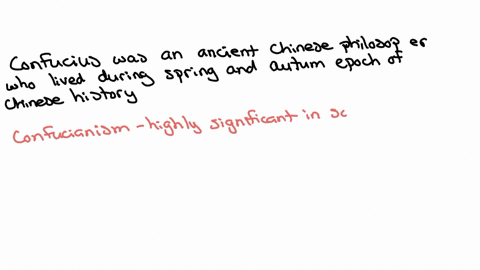 Confucius was an ancient Chinese philosop er
who lived during spring and autum epoch of
Chinese history
Confucianism - highly significant in sc